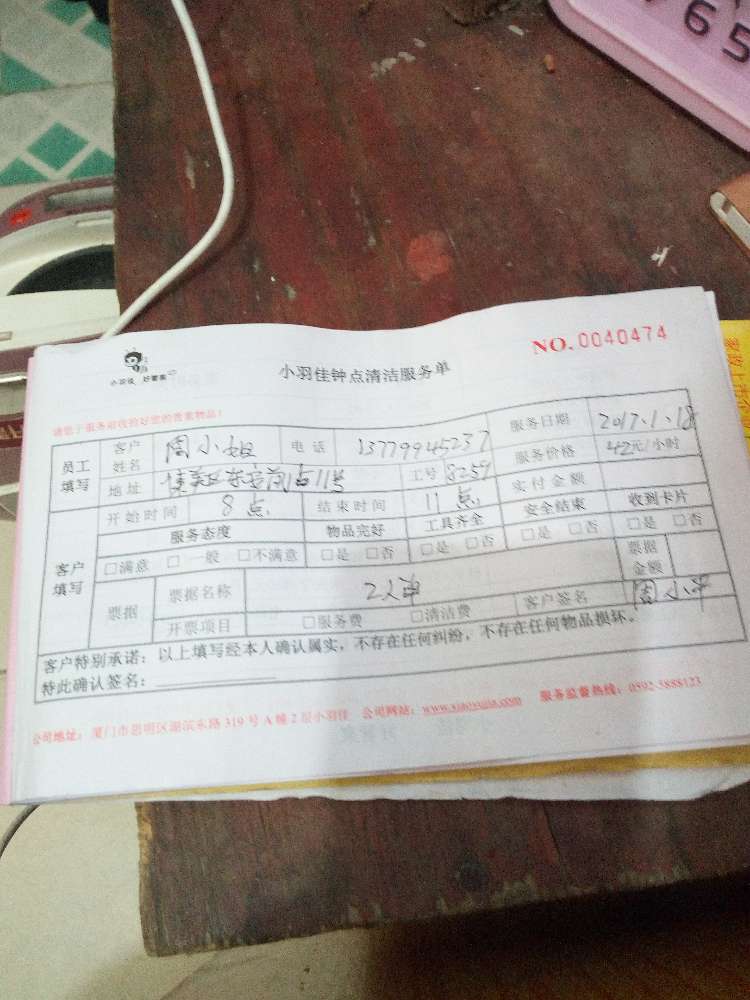 765
小羽佳 好管家
小羽佳钟点清洁服务单
NO.0040474
请您于服务前收拾好您的贵重物品!
员工填写 客户姓名 周小姐 电话 13779945237 服务日期 2017.1.18
地址 11号 工号 8259 服务价格 42元/小时
开始时间 8点 结束时间 11点 实付金额
客户填写 服务态度 物品完好 工具齐全 安全结束 收到卡片
□满意 □一般 □不满意 □是 □否 □是 □否 □是 □否 □是 □否
票据 票据名称 2人冲 票据金额
开票项目 □服务费 □清洁费 客户签名 周小冲
客户特别承诺:以上填写经本人确认属实,不存在任何纠纷,不存在任何物品损坏。
特此确认签名:
公司地址:厦门市思明区湖滨东路319号A幢2层小羽佳 公司网站:www.xiaoyujia.com 服务监督热线:0592-5888123